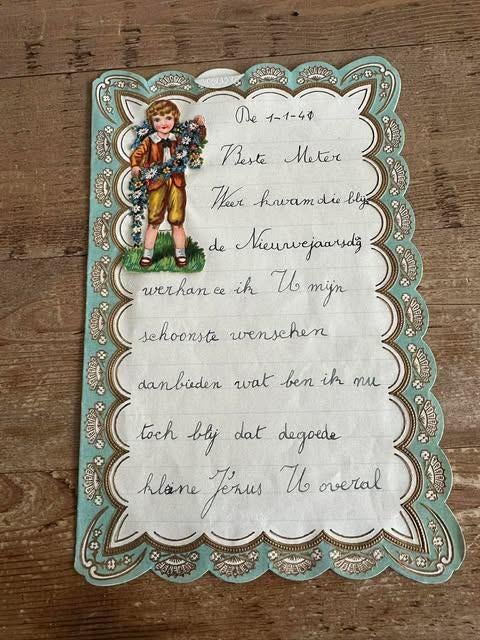 De 1-1-41
Beste Meter
Weer kwam die blijde
de Nieuwejaarsdg
werkan ce ik U mijn
schoonste wenschen
aanbieden wat ben ik nu
toch blij dat degoede
kleine Jézus U overal